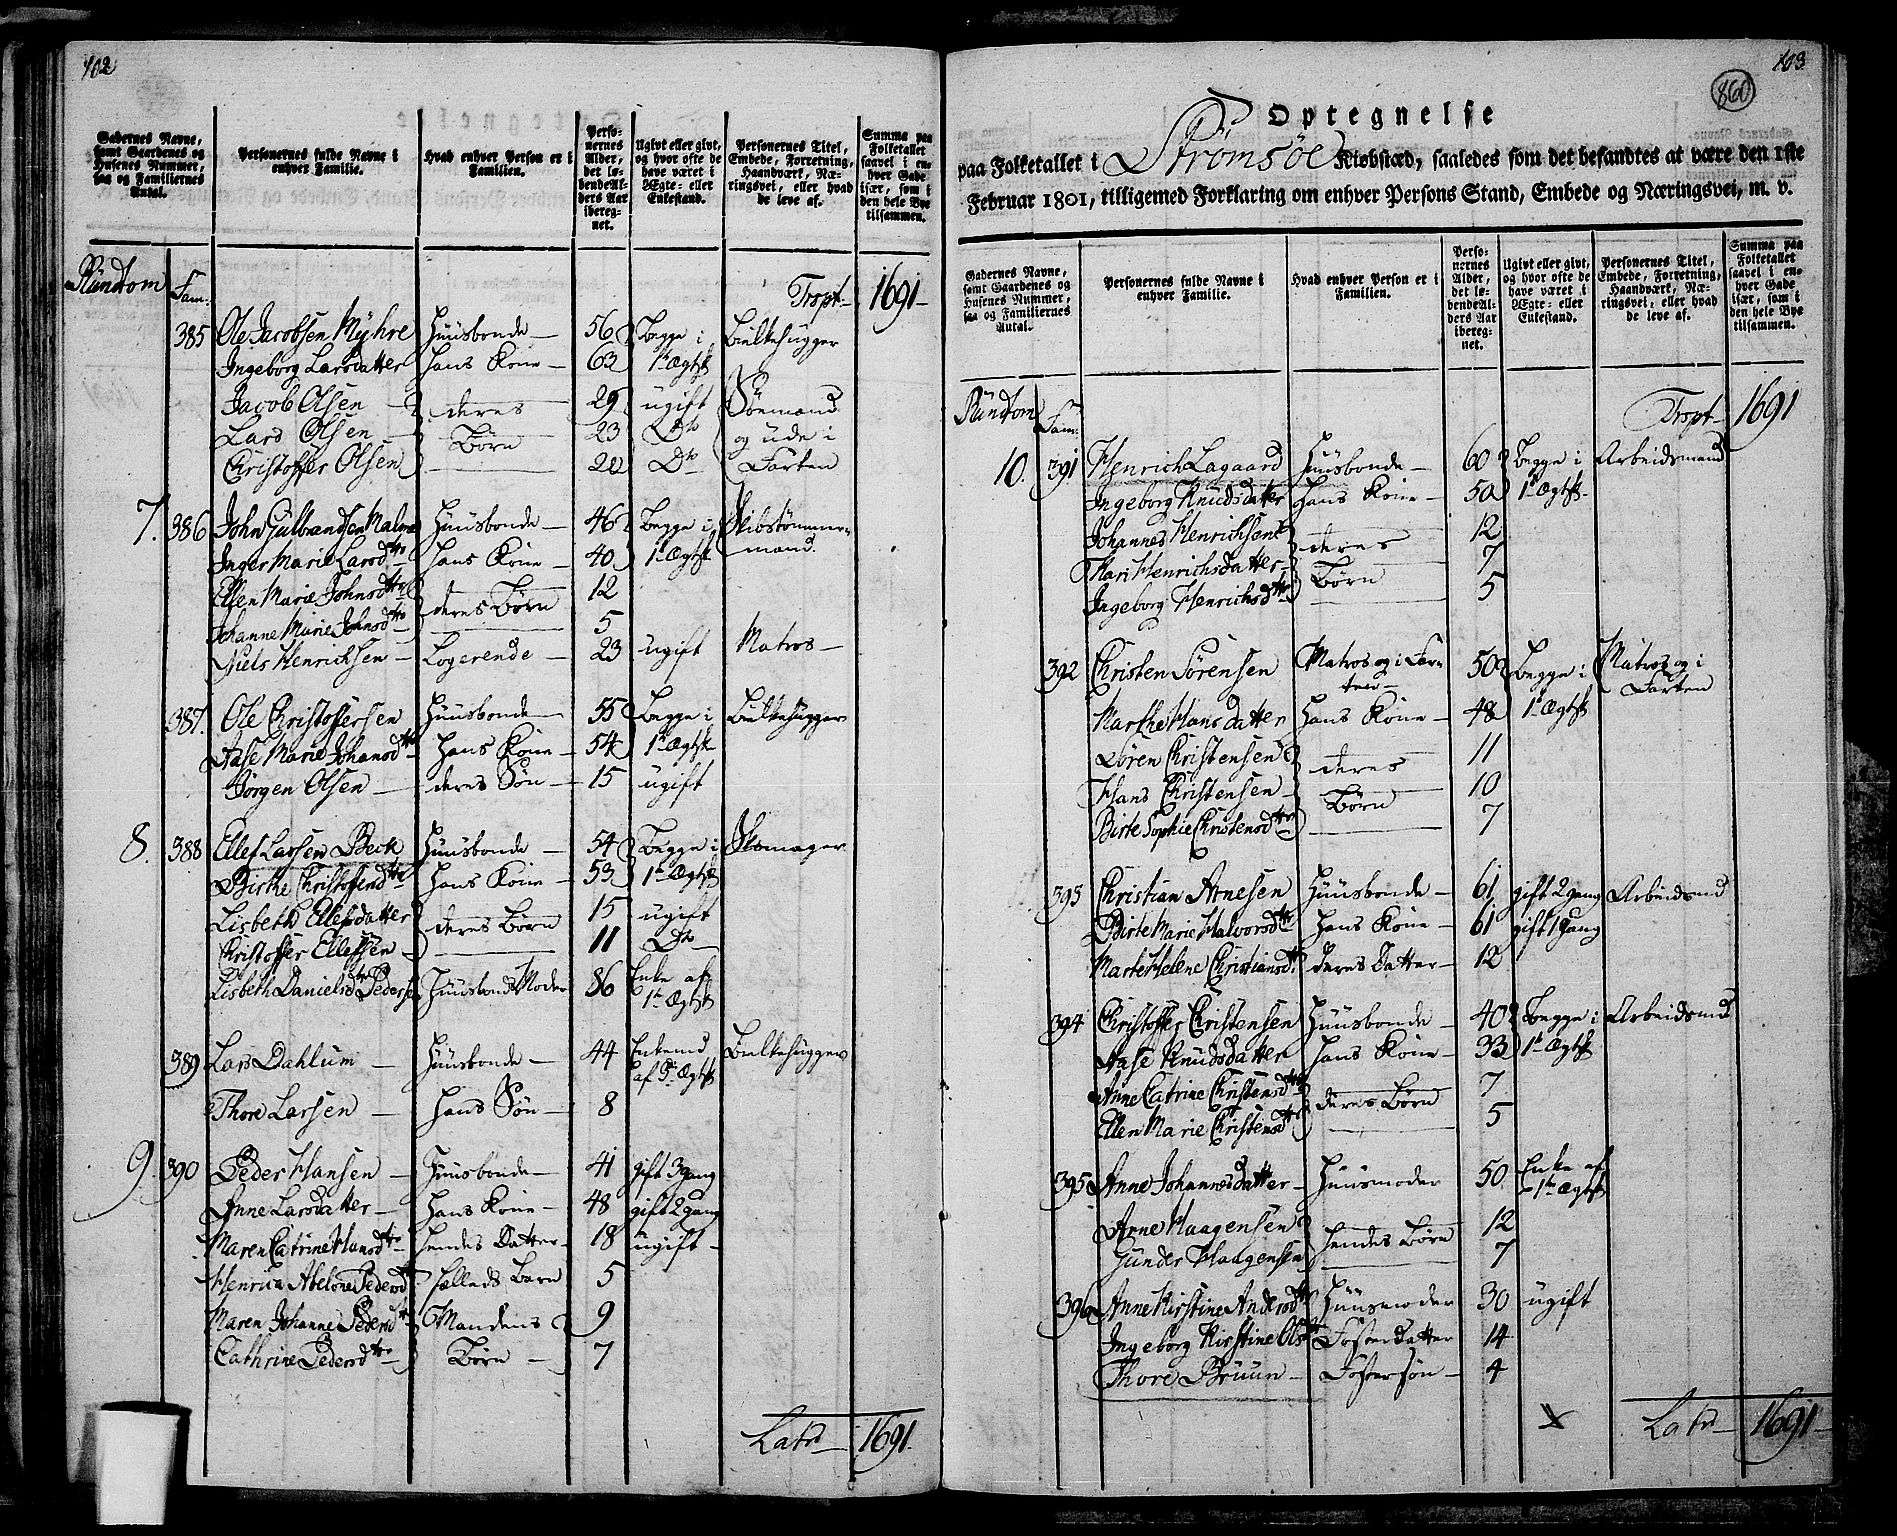 102
Gadernes Navne,
samt Gaardenes og
Husenes Nummer,
saa og Familiernes
Antal.
Personernes fulde Navne i
enhver Familie.
Hvad enhver Person er i
Familien.
Perso-
nernes
Alder,
det lø-
bende Al-
ders Aar
ibereg-
net.
Ugivt eller givt,
og hvor ofte de
have været i
Ægte- eller
Enkestand.
Personernes Titel,
Embede, Forretning,
Haandværk, Næ-
ringsvei, eller hvad
de leve af.
Summa paa
Folketallet
saavel i en-
hver Gade
især, som i
den hele Bye
tilsammen.
Rundtom Fam: Tropt- 1691-
385 Ole Jacobsen Myhre Huusbonde- 56 Begge i Bulkehugger
Ingeborg Larsdatter Hans Kone- 63 1te Ægtsk
Jacob Olsen deres 29 ugift Søemand
Lars Olsen Børn 23 Dto og ude i
Christoffer Olsen 20 Dto Farten
7. 386 John Gulbrandsen Malm Huusbonde- 46 Begge i Skibstømmer-
Inger Marie Larsdtr- Hans Kone- 40 1te Ægtsk mand.
Ellen Marie Johnsdtr 12
deres Børn
Johanne Marie Johnsdtr- 5
Niels Henrichsen- Logerende- 23 ugift Matros-
387. Ole Christoffersen Huusbonde- 55 Begge i Bulkehugger
Aase Marie Johansdtr Hans Kone- 54 1te Ægtsk
Jørgen Olsen- deres Søn- 15 ugift
8. 388 Ellef Larsen Beck Huusbonde- 54 Begge i Skomager
Birthe Christofersdtr Hans Kone- 53 1te Ægtsk
Lisbeth Ellefsdatter deres Børn 15 ugift
Christoffer Ellefsen- 11 Dto
Lisbeth Danielsdtr Pederse Huusbonds Moder 86 Enke af
1te Ægtsk
389 Lars Dahlum- Huusbonde- 44 Enkemd Bulkehugger
af 3die Ægtsk
Thore Larsen- Hans Søn- 8
9. 390 Peder Hansen- Huusbonde- 41 gift 3 gang
Anne Larsdatter- Hans Kone- 48 gift 2 gang
Maren Catrine Hansdtr- hendes Datter- 18 ugift-
Henrica Abelone Pedersdtr fælleds Barn 5
Maren Johanne Pedersdtr Mandens 9
Cathrine Pedersdtr- Børn- 7
Lats- 1691.
103
860
Optegnelse
paa Folketallet i Strømsøe Kiøbstæd, saaledes som det befandtes at være den 1ste
Februar 1801, tilligemed Forklaring om enhver Persons Stand, Embede og Næringsvei, m. v.
Gadernes Navne,
samt Gaardenes og
Husenes Nummer,
saa og Familiernes
Antal.
Personernes fulde Navne i
enhver Familie.
Hvad enhver Person er i
Familien.
Perso-
nernes
Alder,
det lø-
bende Al-
ders Aar
ibereg-
net.
Ugivt eller givt,
og hvor ofte de
have været i
Ægte- eller
Enkestand.
Personernes Titel,
Embede, Forretning,
Haandværk, Næ-
ringsvei, eller hvad
de leve af.
Summa paa
Folketallet
saavel i en-
hver Gade
især, som i
den hele Bye
tilsammen.
Rundtom Fam: Tropt- 1691
10. 391 Henrich Lagaard Huusbonde- 60 Begge i Arbeidsmand
Ingeborg Knudsdatter Hans Kone- 50 1te Ægtsk-
Johannes Henrichsen 12
deres
Mari Henrichsdatter- 7
Børn
Ingeborg Henrichsdtr 5
392 Christen Sørensen Matros og i Far- 50 Begge i Matros og i
ten- Farten
Marthe Hansdatter Hans Kone- 48 1te Ægtsk
Søren Christensen 11
deres
Hans Christensen- 10
Børn
Birte Sophie Christensdtr 7
393 Christian Arnesen Huusbonde- 61 gift 2 gang Arbeidsmd
Birte Marie Halvorsdtr Hans Kone- 61 gift 1 gang
Marte Helene Christiansdtr deres Datter- 12
394 Christoffer Christensen Huusbonde- 40 Begge i Arbeidsmd
Aase Knudsdatter Hans Kone- 33 1te Ægtsk
Anne Catrine Christensdtr 7
deres Børn
Ellen Marie Christensdtr 5
395 Anne Johannesdatter- Huusmoder 50 Enke af
1te Ægtsk
Arne Haagensen 12
hendes Børn
Gunder Haagensen 7
396 Anne Kirstine Andersdtr Huusmoder 30 ugift
Ingeborg Kirstine Olsdtr Fosterdatter 14
Thore Bruun- Fostersøn- 4
x Lats- 1691-